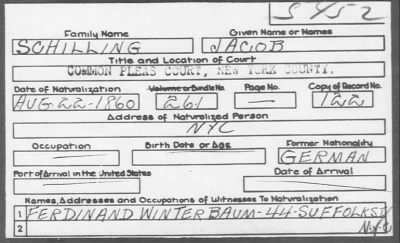 S 452
Family Name Given Name or Names
SCHILLING JACOB
Title and Location of Court
COMMON PLEAS COURT, NEW YORK COUNTY.
Date of Naturalization Volume or Bundle No. Page No. Copy of Record No.
AUG 22-1860 261 — 122
Address of Naturalized Person
NYC
Occupation Birth Date or Age Former Nationality
GERMAN
Port of Arrival in the United States Date of Arrival
Names, Addresses and Occupations of Witnesses To Naturalization
1 FERDINAND WINTERBAUM-44-SUFFOLK ST
2 N.Y.C